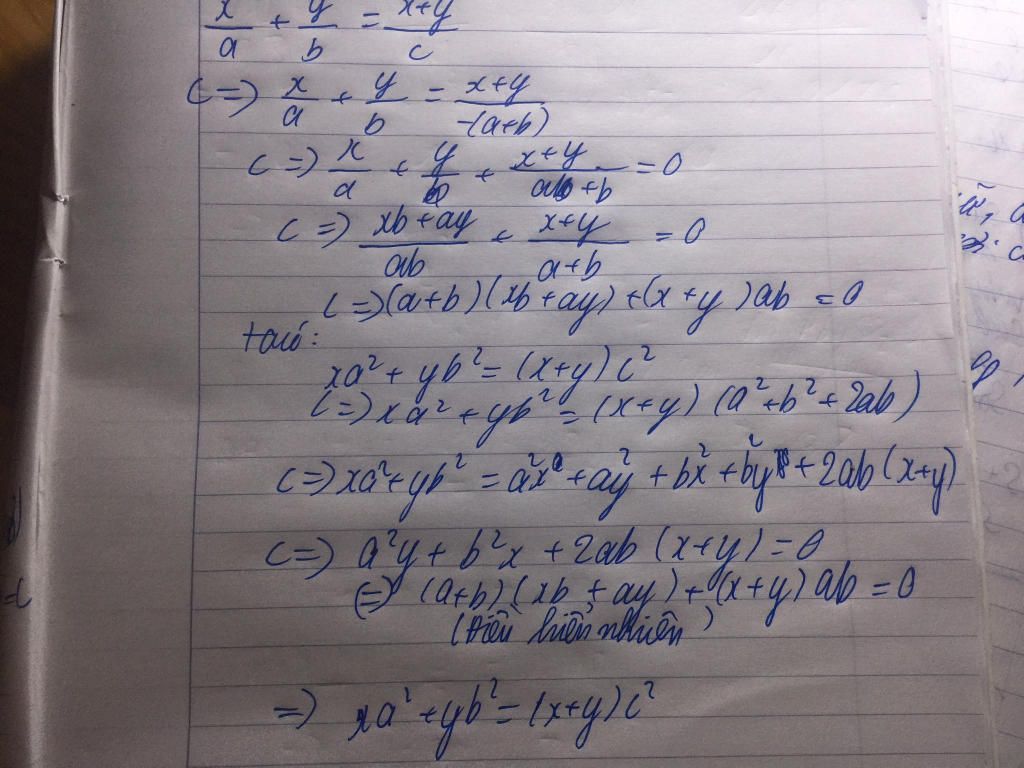 x/a + y/b = x+y/c
<=> x/a + y/b = x+y/-(a+b)
<=> x/a + y/b + x+y/a+b = 0
<=> xb+ay/ab + x+y/a+b = 0
<=> (a+b)(xb+ay)+(x+y)ab = 0
ta có:
xa² + yb² = (x+y)c²
<=> xa² + yb² = (x+y)(a²+b²+2ab)
<=> xa²+yb² = a²x + a²y + b²x + b²y + 2ab(x+y)
<=> a²y + b²x + 2ab(x+y) = 0
<=> (a+b)(xb+ay)+(x+y)ab = 0
(Điều hiển nhiên)
=> xa² + yb² = (x+y)c²